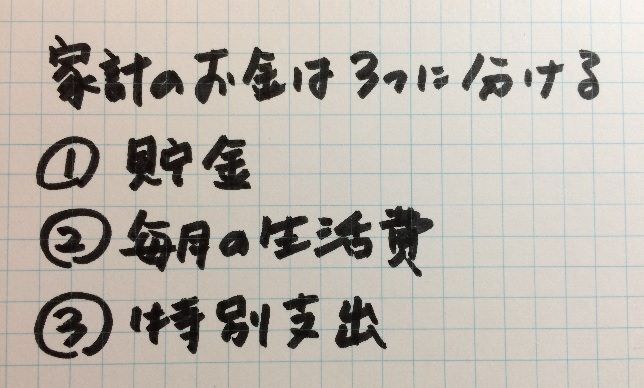 家計のお金は3つに分ける
① 貯金
② 毎月の生活費
③ 特別支出